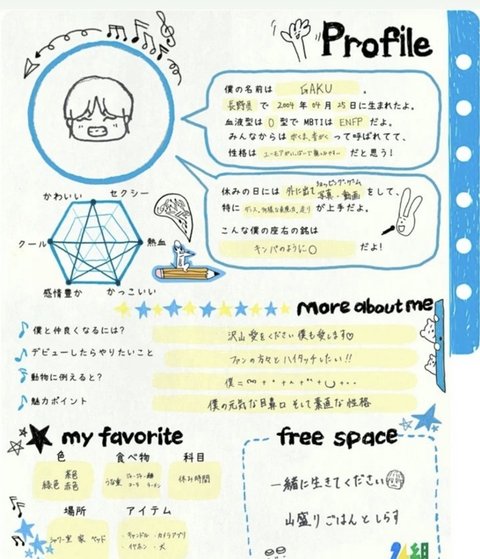 Profile
僕の名前は GAKU .
長野県 で 2004 年 04 月 25 日に生まれたよ。
血液型は O 型で MBTIは ENFP だよ。
みんなからは がくま, がく って呼ばれてて、
性格は だと思う!
休みの日には 外に出て ショッピング・ゲーム 写真・動画 をして、
特に が上手だよ。
こんな僕の座右の銘は
キンパのように○ だよ!
かわいい
セクシー
クール
熱血
感情豊か
かっこいい
more about me
僕と仲良くなるには?
沢山愛をください僕も愛します♡
デビューしたらやりたいこと
ファンの方々とハイタッチしたい!!
動物に例えると?
僕=
魅力ポイント
僕の元気な目鼻口 そして素直な性格
my favorite
色
食べ物
科目
茶色
緑色 赤色
うな重
ラーメン
休み時間
場所
アイテム
シャワー室 家 ベッド
・キャンドル ・カメラアプリ
・イヤホン ・犬
free space
一緒に生きてください
山盛りごはんとしらす